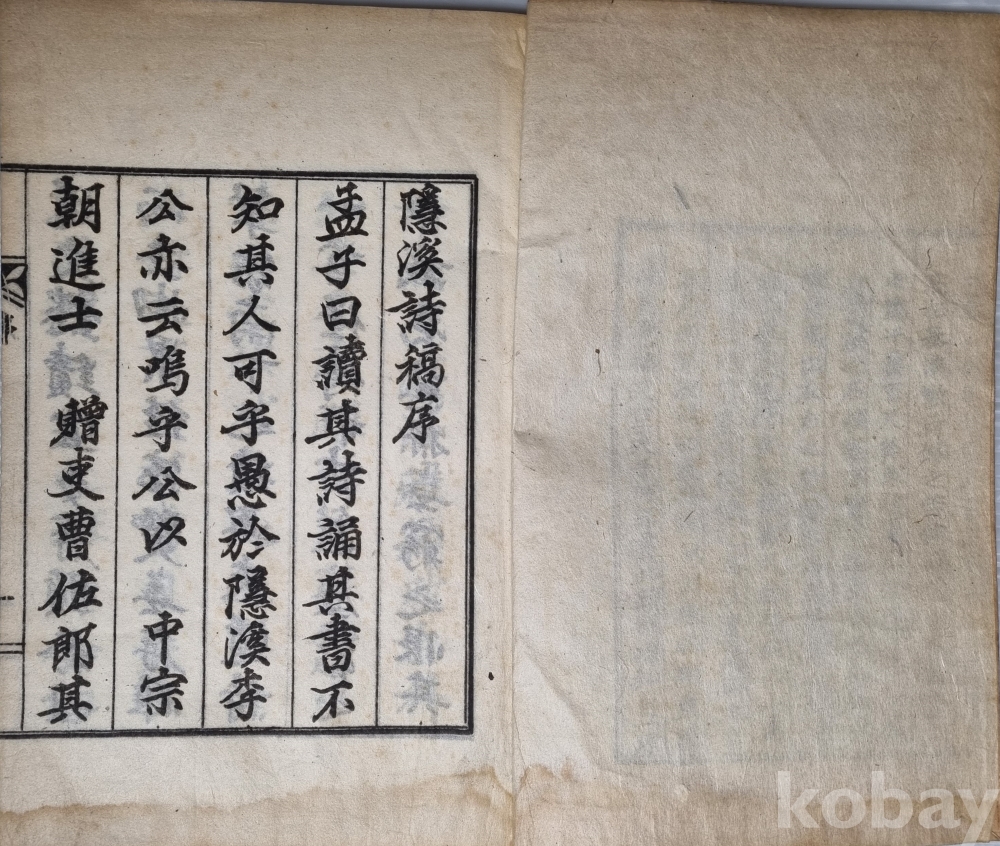 隱溪詩稿序
孟子曰讀其詩誦其書不
知其人可乎愚於隱溪李
公亦云嗚乎公以 中宗
朝進士 贈吏曹佐郎其
序
kobay